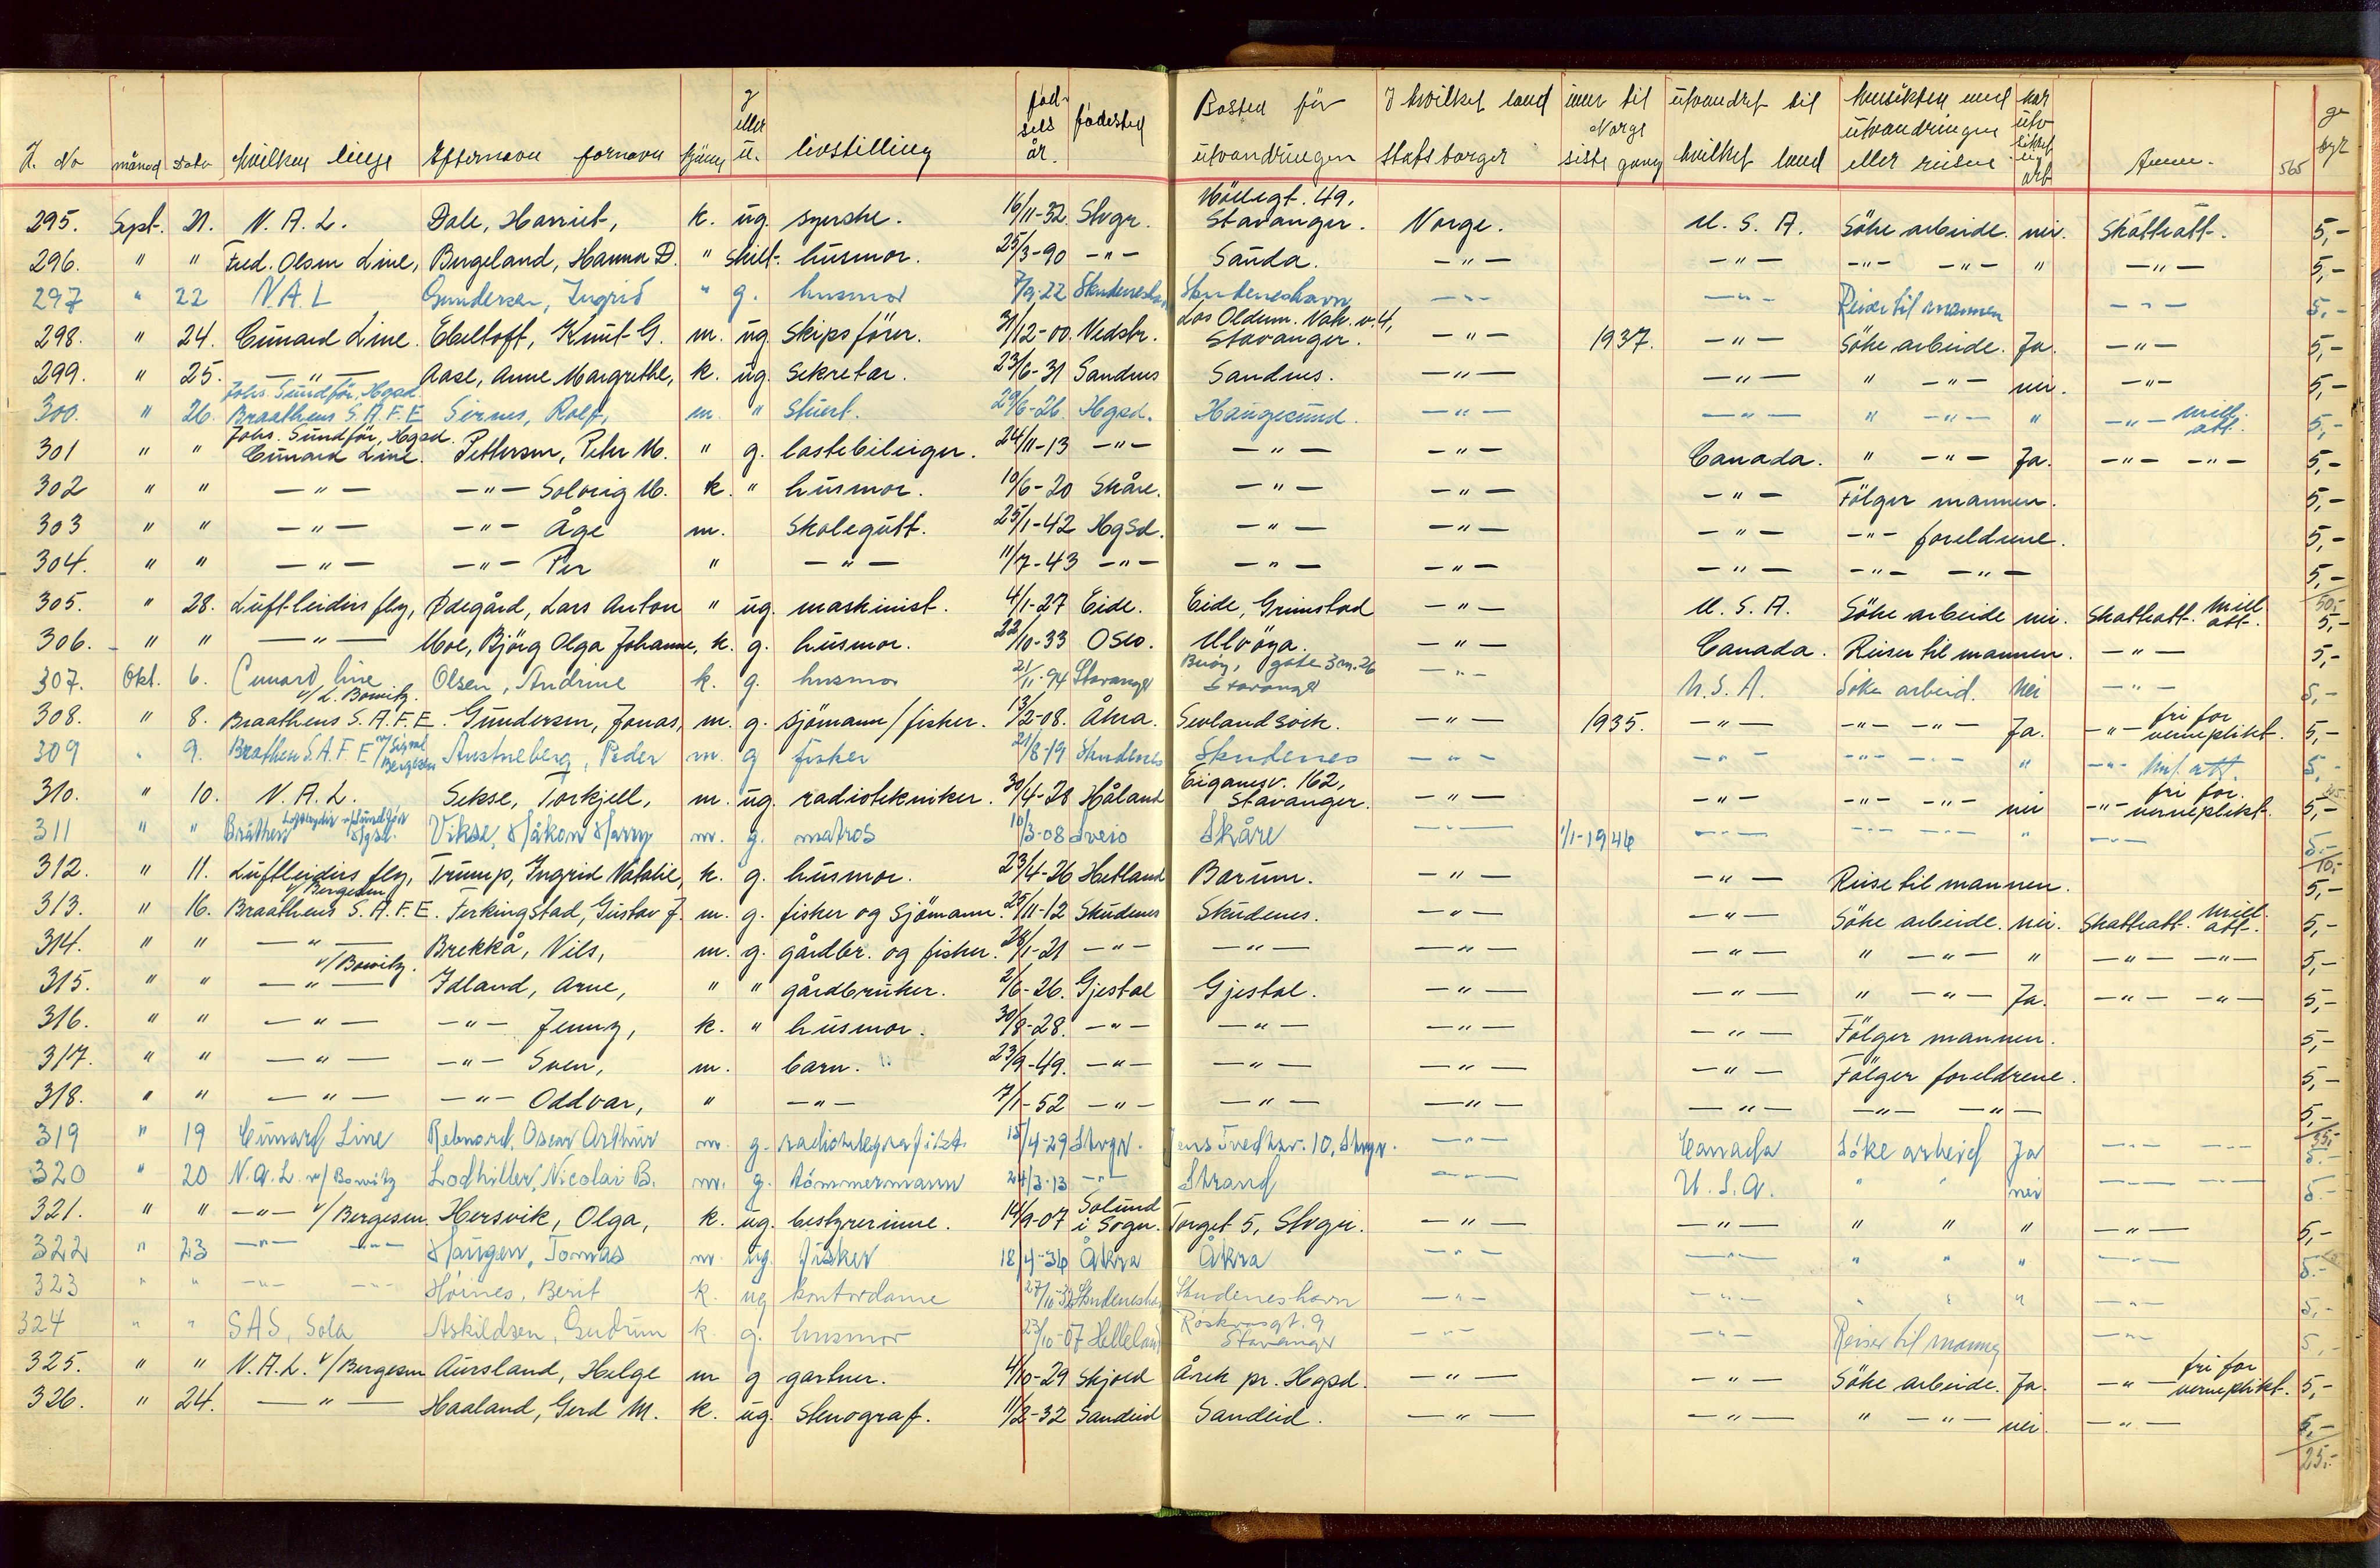 J. No månad Dato hvilken linje Efternavn fornavn kjönn g eller u. livstilling fød-sels år. fødested Bosted för utvandringen I hvilket land statsborger inn til Norge siste gang utvandret til hvilket land hensikten med utvandringen eller reisen har utv sikket arb Anm. 565 ge byr
295. Sept. 21. N. A. L. Dale, Harriet, k. ug. syerske. 16/11-32. Stvgr. Möllegt. 49, Stavanger. Norge. U. S. A. Söke arbeide. nei. Skatteatt. 5,-
296. " " Fred. Olsen Line, Bergeland, Hanna D. " skilt. husmor. 25/3-90 -"- Sauda. -"- -"- -"- -"- " -"- 5,-
297 " 22 N.A.L Gundersen, Ingrid " g. husmor 7/9-22 Skudeneshavn Skudeneshavn -"- -"- Reiser til mannen -"- 5,-
298. " 24. Cunard Line. Ebeltoft, Knut G. m. ug. Skipsförer. 31/12-00. Vedstr. Los Oldem. Vak. v. 4, Stavanger. -"- 1937. -"- Söke arbeide. Ja. -"- 5,-
299. " 25. -"- Aase, Anne Margrethe, k. ug. Sekretær. 23/6-31 Sandnes Sandnes. -"- -"- " -"- nei. -"- 5,-
300. " 26. Johs. Sundför, Hgsd. Braathens S.A.F.E Sirnes, Rolf, m. " stuert. 29/6-26. Hgsd. Haugesund. -"- -"- " -"- " -"- mill. att. 5,-
301 " " Johs. Sundför, Hgsd. Cunard Line. Pettersen, Peter M. " g. lastebileiger. 24/11-13 -"- -"- -"- Canada. " -"- Ja. -"- -"- 5,-
302 " " -"- -"- Solveig M. k. " husmor. 10/6-20 Skåre. -"- -"- -"- Fölger mannen. 5,-
303 " " -"- -"- Åge m. Skolegutt. 25/1-42 Hgsd. -"- -"- -"- -"- foreldrene. 5,-
304. " " -"- -"- Per " -"- 11/7-43 -"- -"- -"- -"- -"- -"- 5,-
50,-
305. " 28. Luftleidirs fly, Ødegård, Lars Anton " ug. maskinist. 4/1-27 Eide. Eide, Grimstad -"- U. S. A. Söke arbeide nei. Skatteatt. mill att. 5,-
306. " " -"- Moe, Björg Olga Johanne, k. g. husmor. 22/10-33 Oslo. Ulvöya. -"- Canada. Reiser til mannen. -"- 5,-
307. Okt. 6. Cunard line v/ L. Bowitz. Olsen, Andrine k. g. husmor 21/11-94 Stavanger Buöy, gate 3 nr. 26 Stavanger -"- U.S.A. Söke arbeid. Nei -"- 5,-
308. " 8. Braathens S.A.F.E. Gundersen, Jonas, m. g. sjömann/fisker. 13/2-08. Åkra. Sevlandsvik. -"- 1935. -"- -"- -"- Ja. -"- fri for verneplikt. 5,-
309 " 9. Braathen S.A.F.E v/ Sigval Bergesen Austneberg, Peder m. g fisker 21/8-19 Skudenes Skudenes -"- -"- -"- -"- " -"- mil. att. 5,-
310. " 10. N. A. L. Sekse, Torkjell, m. ug. radiotekniker. 30/4-28 Håland Eiganesv. 162, Stavanger. -"- -"- -"- -"- nei -"- fri for. verneplikt. 5,-
311 " " Bråthen v/Sundför Hgsd. Vikse, Håkon Harry m. g. matros 10/3-08 Sveio Skåre -"- 1/1-1946 -"- -"- -"- " -"- 5.-
10,-
312. " 11. Luftleidirs fly, Trump, Ingrid Natalie, k. g. husmor. 23/4-26 Hetland Bærum. -"- -"- Reise til mannen. 5,-
313. " 16. v/Bergesen Braathens S.A.F.E. Ferkingstad, Gustav J. m. g. fisker og Sjömann. 25/11-12 Skudenes Skudenes. -"- -"- Söke arbeide. nei. Skatteatt. mill. att. 5,-
314. " " -"- Brekkå, Nils, m. g. gårdbr. og fisker. 28/1-21 -"- -"- -"- -"- " -"- " -"- -"- 5,-
315. " " v/Bowitz. -"- Idland, Arne, " " gårdbruker. 2/6-26. Gjestal Gjestal. -"- -"- " -"- Ja. -"- -"- 5,-
316. " " -"- -"- Jenny, k. " husmor. 30/8-28. -"- -"- -"- -"- Fölger mannen. 5,-
317. " " -"- -"- Sven, m. barn. 23/9-49. -"- -"- -"- -"- Fölger foreldrene. 5,-
318. " " -"- -"- Oddvar, " -"- 7/1-52 -"- -"- -"- -"- -"- -"- 5,-
35,-
319 " 19 Cunard Line Rebnord, Oscar Arthur m. g. radiotelegrafist. 15/4-29 Stvgr. Jens Tvedtsv. 10, Stvgr. -"- Canada Söke arbeid Ja -"- -"- 5.-
320 " 20 N.A.L. v/Bowitz Lodhiller, Nicolai B. m. g. tömmermann 24/3-13 -"- Strand -"- U.S.A. " " nei -"- -"- 5.-
321. " " -"- v/Bergesen. Hersvik, Olga, k. ug. bestyrerinne. 14/9-07 Solund i Sogn. Torget 5, Stvgr. -"- -"- " " " -"- 5,-
322 " 23 -"- -"- Haugen, Tomas m. ug. fisker 18/4-34 Åkra Åkra -"- -"- " " " -"- 5.-
323 " " -"- -"- Höines, Berit k. ug kontordame 27/10-32 Skudeneshavn Skudeneshavn -"- -"- " " " -"- 5,-
324 " " SAS, Sola Askildsen, Gudrun k. g. husmor 23/10-07 Helleland Röskvasgt. 9 Stavanger -"- -"- Reiser til mannen -"- 5,-
325. " " N.A.L. v/Bergesen Aursland, Helge m g gartner. 4/10-29 Skjold Årek pr. Hgsd. -"- -"- Söke arbeide. Ja. -"- fri for verneplikt. 5,-
326. " 24. -"- Haaland, Gerd M. k. ug. Stenograf. 11/2-32 Sandeid Sandeid. -"- -"- " -"- nei. -"- 5,-
25,-